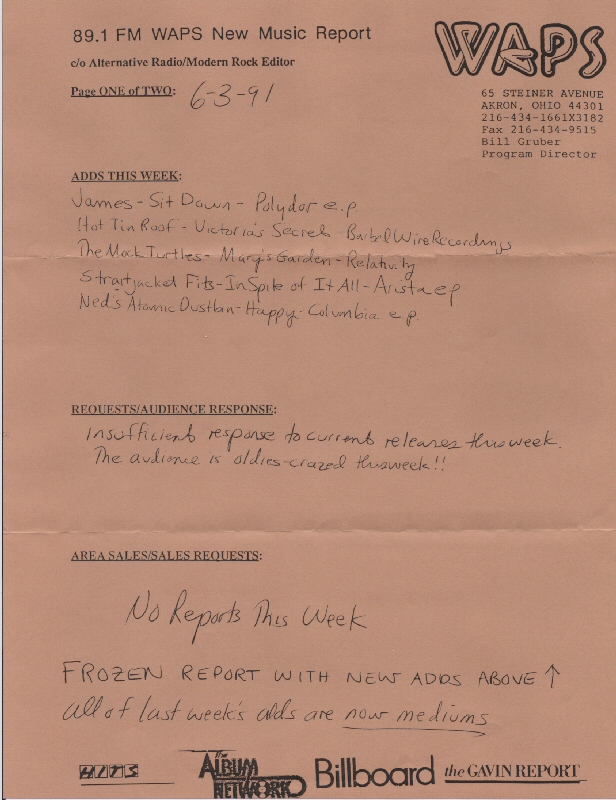 89.1 FM WAPS New Music Report
c/o Alternative Radio/Modern Rock Editor
Page ONE of TWO: 6-3-91
WAPS
65 STEINER AVENUE
AKRON, OHIO 44301
216-434-1661X3182
Fax 216-434-9515
Bill Gruber
Program Director
ADDS THIS WEEK:
James - Sit Down - Polydor e.p.
Hot Tin Roof - Victoria's Secrets - Barbed Wire Recordings
The Mock Turtles - Mary's Garden - Relativity
Straitjacket Fits - In Spite of It All - Arista e p
Ned's Atomic Dustbin - Happy - Columbia e.p.
REQUESTS/AUDIENCE RESPONSE:
Insufficient response to current releases this week.
The audience is oldies-crazed this week!!
AREA SALES/SALES REQUESTS:
No Reports This Week
FROZEN REPORT WITH NEW ADDS ABOVE ↑
All of last week's adds are now mediums
HITS
The ALBUM NETWORK Billboard the GAVIN REPORT